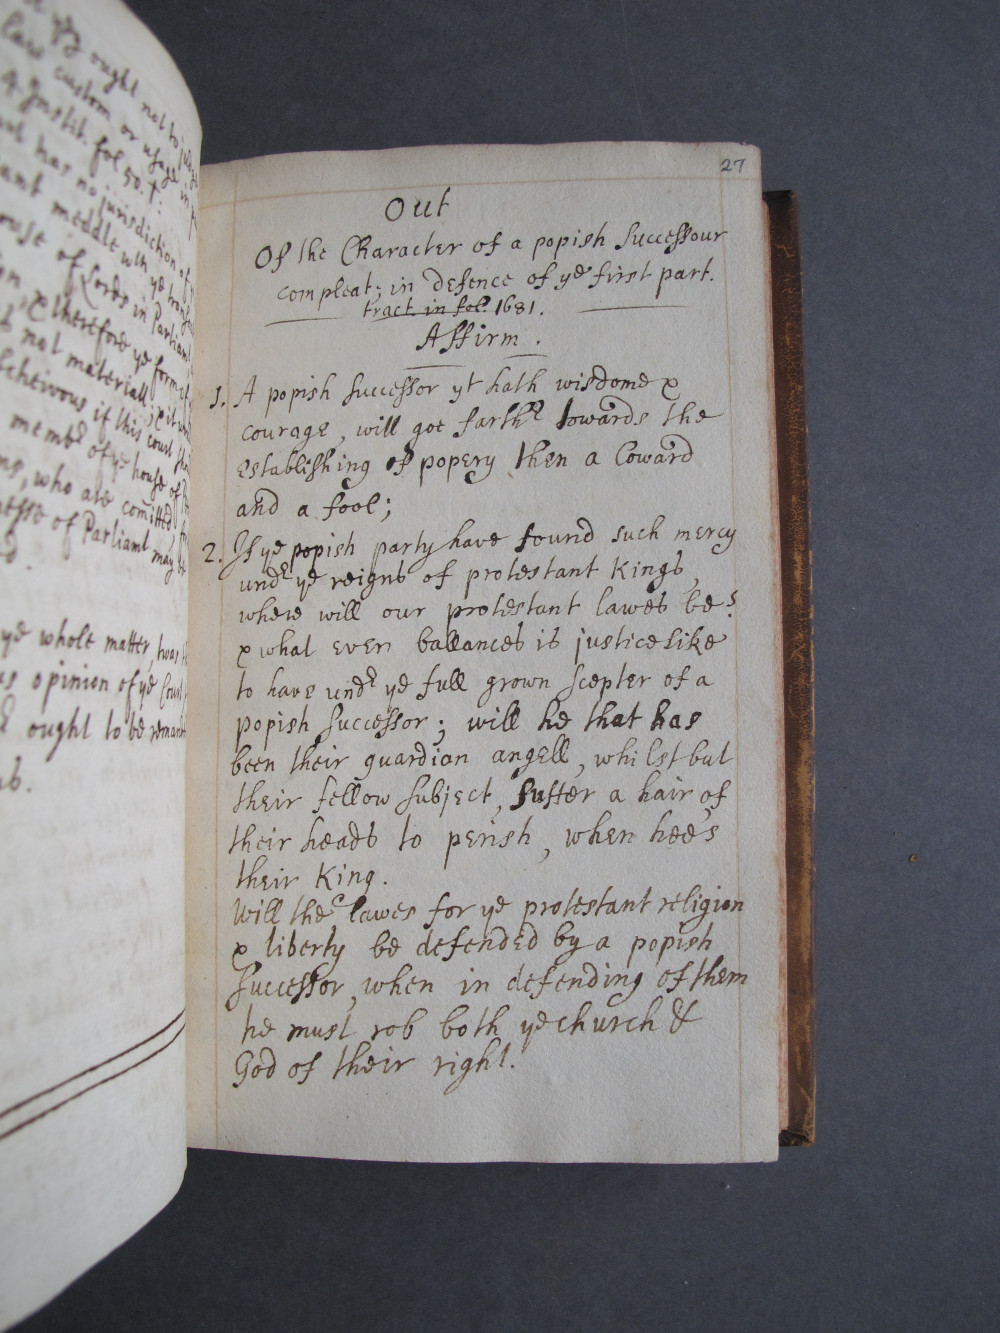 ye ought not to judge
law custom or usage in
4 Instit. fol. 50.
has no jurisdiction of
meddle wth ye
house of Lords in Parliamt
& therefore ye form of
not materiall, & it
if this court
membr of ye house of
who are comitted,
of Parliamt may be
ye whole matter, twas
opinion of ye Court
ought to be remanded
27
Out
Of the Character of a popish Successour
compleat; in defence of ye first part.
tract. in fol. 1681.
Affirm.
1. A popish Successor yt hath wisdome &
courage, will goe farthr towards the
establishing of popery then a Coward
and a fool;
2. If ye popish party have found such mercy
undr ye reigns of protestant Kings,
where will our protestant lawes be?
& what even ballances is justice like
to have undr ye full grown scepter of a
popish Successor; will he that has
been their guardian angell, whilst but
their fellow subject, suffer a hair of
their heads to perish, when hee's
their King.
Will the lawes for ye protestant religion
& liberty be defended by a popish
Successor, when in defending of them
he must rob both ye church &
God of their right.